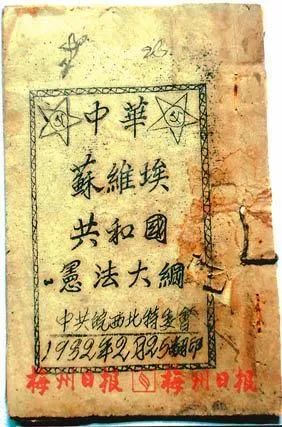 中華
蘇維埃
共和國
憲法大綱
中共皖西北特委會
1932年2月25翻印
梅州日报 梅州日报